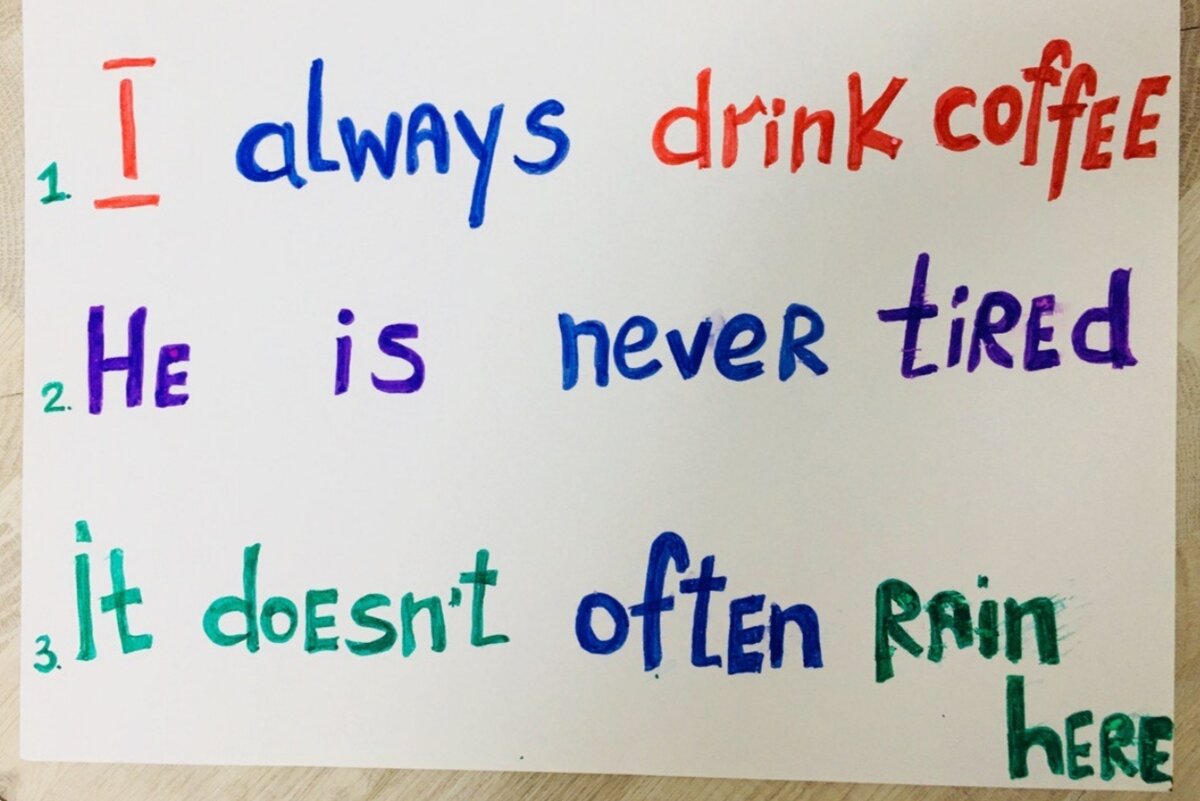 1. I always drink coffee
2. He is never tired
3. it doesn't often rain
here